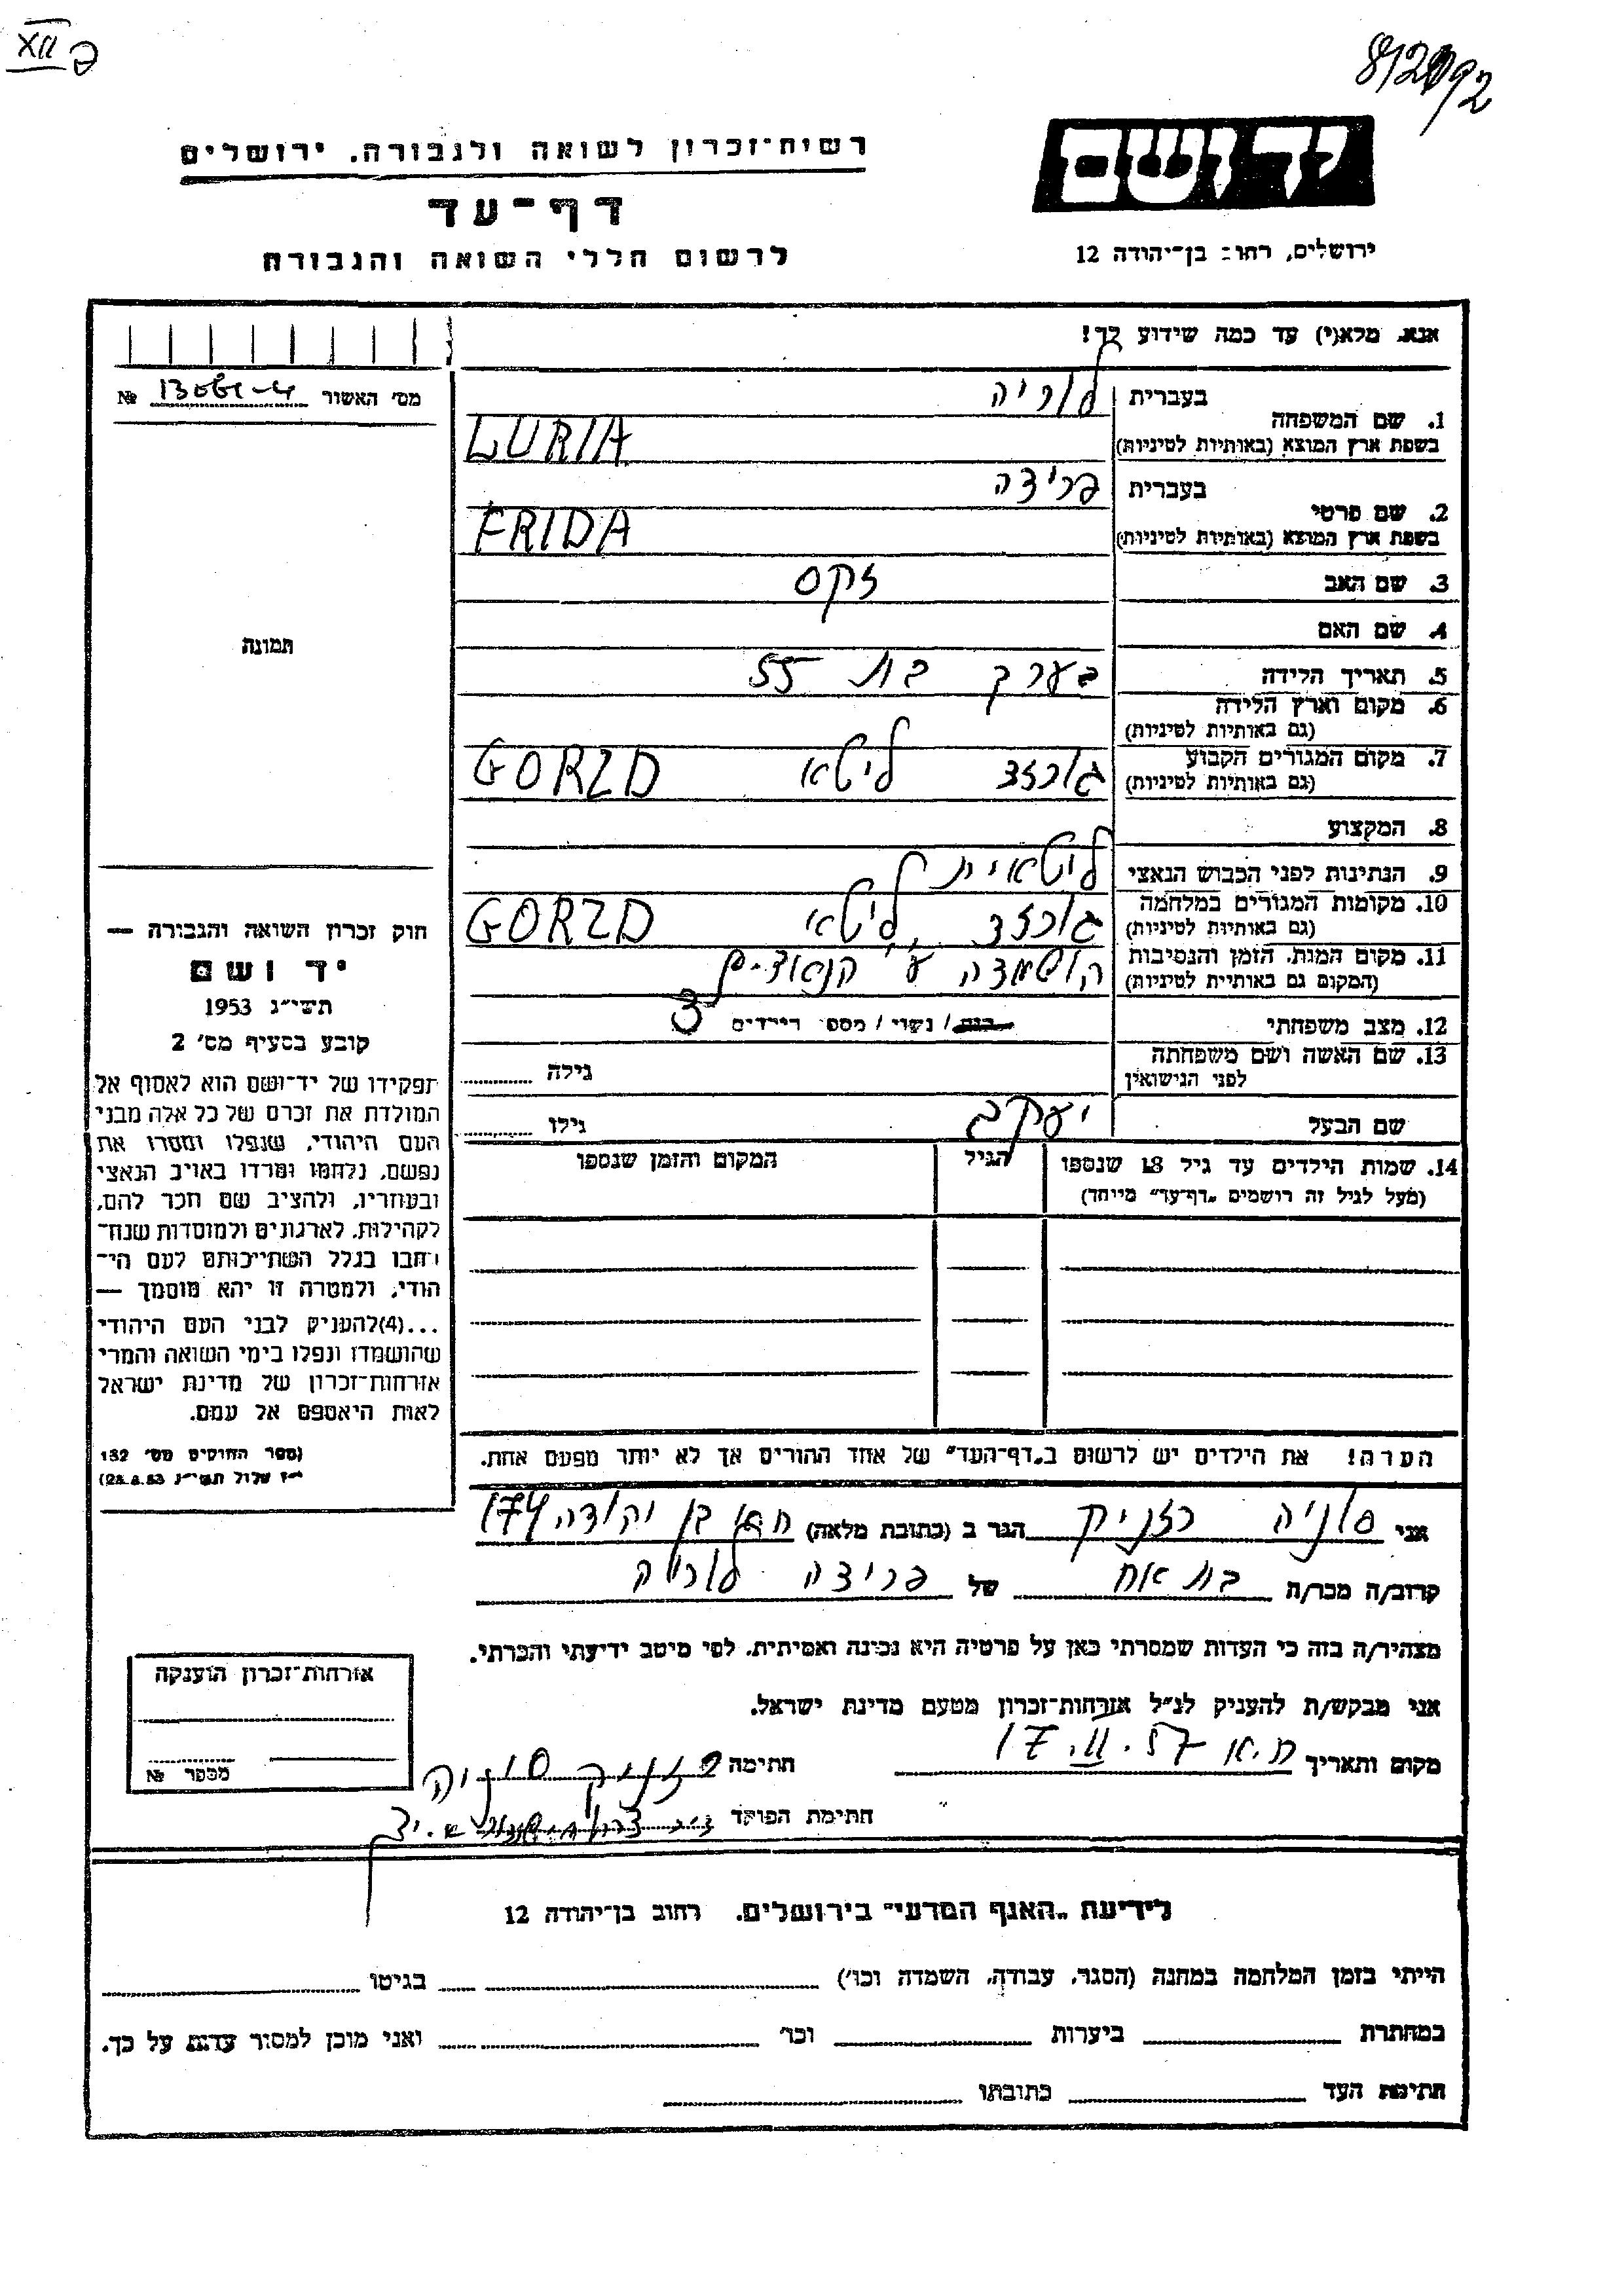 XII
812092
רשות־זכרון לשואה ולגבורה. ירושלים
יד ושם
דף־עד
לרשום חללי השואה והגבורה
ירושלים, רחוב בן־יהודה 12
אנא, מלא(י) עד כמה שידוע לך!
מס' האשור №
1. שם המשפחה
בעברית לוריה
בשפת ארץ המוצא (באותיות לטיניות) LURIA
2. שם פרטי
בעברית פרידה
בשפת ארץ המוצא (באותיות לטיניות) FRIDA
3. שם האב זקס
4. שם האם
5. תאריך הלידה בערך בת 55
6. מקום וארץ הלידה
(גם באותיות לטיניות)
7. מקום המגורים הקבוע גורזד ליטא GORZD
(גם באותיות לטיניות)
8. המקצוע
9. הנתינות לפני הכבוש הנאצי ליטאית
10. מקומות המגורים במלחמה גורזד ליטא GORZD
(גם באותיות לטיניות)
11. מקום המות, הזמן והנסיבות הושמדה ע"י הנאצים
(המקום גם באותיות לטיניות)
12. מצב משפחתי רווק/ נשוי/ מספר הילדים 3
13. שם האשה ושם משפחתה
לפני הנישואין
גילה
שם הבעל יעקב גילו
14. שמות הילדים עד גיל 18 שנספו
(מעל לגיל זה רושמים „דף־עד" מייחד)
הגיל
המקום והזמן שנספו
הערה! את הילדים יש לרשום ב„דף־העד" של אחד ההורים אך לא יותר מפעם אחת.
תמונה
חוק זכרון השואה והגבורה —
יד ושם
תשי"ג 1953
קובע בסעיף מס' 2
תפקידו של יד־ושם הוא לאסוף אל
המולדת את זכרם של כל אלה מבני
העם היהודי, שנפלו ומסרו את
נפשם, נלחמו ומרדו באויב הנאצי
ובעוזריו, ולהציב שם וזכר להם,
לקהילות, לארגונים ולמוסדות שנח־
רבו בגלל השתייכותם לעם הי־
הודי, ולמטרה זו יהא מוסמך —
...(4)להעניק לבני העם היהודי
שהושמדו ונפלו בימי השואה והמרי
אזרחות־זכרון של מדינת ישראל
לאות היאספם אל עמם.
(ספר החוקים מס' 132
י"ז אלול תשי"ג 28.8.53)
אני סוניה רזניק הגר ב (כתובת מלאה) בן יהודה 174
קרוב/ה מכר/ה בת אח של פרידה לוריה
מצהיר/ה בזה כי העדות שמסרתי כאן על פרטיה היא נכונה ואמיתית, לפי מיטב ידיעתי והכרתי.
אני מבקש/ת להעניק לנ"ל אזרחות־זכרון מטעם מדינת ישראל.
מקום ותאריך ת.א 17.11.57 חתימה רזניק סוניה
חתימת הפוקד
אזרחות־זכרון הוענקה
מספר №
לידיעת „האגף המדעי" בירושלים, רחוב בן־יהודה 12
הייתי בזמן המלחמה במחנה (הסגר, עבודה, השמדה וכו') בגיטו
במחתרת ביערות וכו' ואני מוכן למסור עדות על כך.
חתימת העד כתובתו